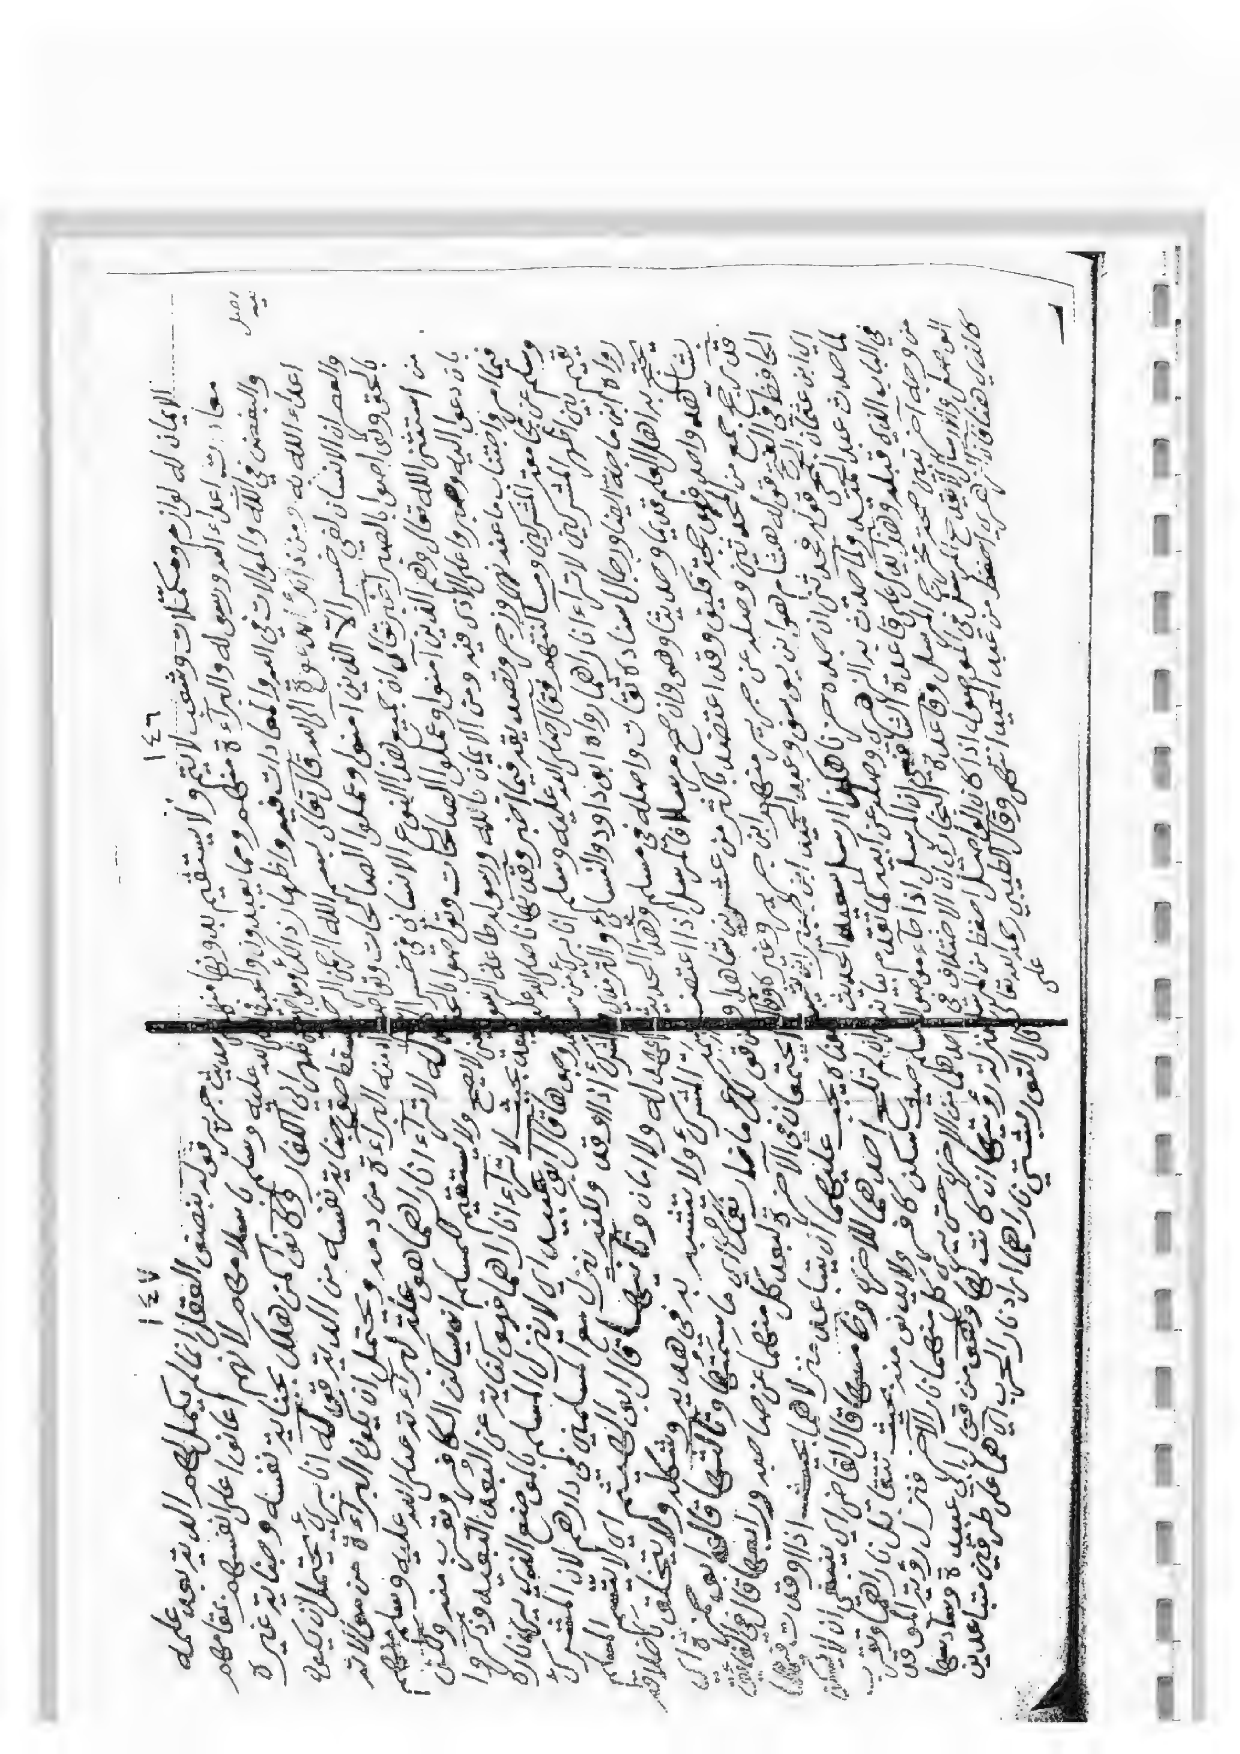 ١٤٦
الايمان له لوازم ومكملات وشعب لايتم ولا يستقيم بدونها منها
معادات اعداء الله ورسوله والبرآءة منهم ومما يعبدون والحب
والبغض في الله والموالات في الله والمعادات فيه واظهار ذالك
اعداء الله له ومن ذالك الدعوة الا الله قال تعالى بسم الله الرحمن الرحيم
والعصر ان الانسان لفي خسر الا الذين امنوا وعملوا الصالحات وتواصوا
بالحق وتواصوا بالصبر اخبر تعالى ان جميع هذا النوع الانساني في خسر الا
من استثنى الله تعالى وهم الذين امنوا وعملوا الصالحات وتواصوا بالحق
بان دعوا اليه وصبروا على الاذى فيه ومن الايمان بالله ورسوله طاعة الرسول
فيما امر واجتناب ما عنه نهى وزجر وتصديقه فيما اخبر وقد نهانا صلى الله عليه
وسلم عن مجامعة المشركين ومساكنتهم فقال صلى الله عليه وسلم انا بريء من مسلم
يقيم بين اظهر المشركين لا تراءا ناراهما رواه ابو داود والنسائي والترمذي
رواه ابن ماجة ايضا ورجال اسناده ثقات واصله في مسلم وهذا الحديث
يحتج به اهل العلم قديما وحديثا وهو وان صح مرسلا فالمرسل اذا اعتضد
بشاهد واحد فهو حجة فكيف وقد اعتضد باكثر من عشرين شاهدا
قد خرجه جمع من المحدثين وصله عن جرير منهم ابن جرير وغيره
الحافظ في الفتح قوله هشام هو ابن يوسف وعبد الحميد ابن جبير
لما حدث عبد الحميد
في الباب الذي قبله وهذا على قاعدة الشافعي ان المرسل اذا جاء موصولا
من وجه آخر تبين صحة مخرج المرسل وقاعدة البخاري ان الاختلاف في
الوصل والارسال لا يقدح المرسل في الموصول اذا كان الواصل احفظ من المرسل
كالذي هنا فان الزهري احفظ من عبد الحميد انتهى وقال الطيبي رحمه الله تعالى
على
١٤٧
قوله بنصف العقل انما لم يكمل لهم الدية بعد علمه
عليه وسلم باسلامهم لانهم اعانوا على انفسهم بمقامهم
بين الكفار وكانوا كمن هلك بجناية نفسه وجناية غيره
فسقط حصة جنايته نفسه من الدية قوله انا بريء يحتمل ان يكون
البراءة من دمه ويحتمل ان يكون البراءة من موالاته
قوله لا تراءا ناراهما هو علة لبراءته صلى الله عليه وسلم
لا يصح ولا يستقيم للمسلم ان يساكن الكافر ويقرب منه ولكن
بحيث لا تراءا ناراهما فهو كناية عن البعد البعيد وذكروا
فيه وجوها قال ابو عبيد اي لا ينزل المسلم بالموضع الذي يرى ناره
المشرك اذا اوقد ولكنه ينزل مع المسلمين في دارهم لان المشرك
لا عهد له ولا امان وثانيها قال ابو الهيثم اي لا يتسم المسلم
بسمة المشرك ولا يتشبه به في هديه وشكله ولا يتخلق باخلاقه
من قولك ما نار نعمك اي ما سمتها وثالثها قال ابو حمزة اي
لا يجتمعان في الآخرة لبعد كل منهما عن صاحبه ورابعها قال في الفائق
معناه يجب عليهما ان يتباعد منزلاهما بحيث اذا اوقدت فيهما
ناران لم تلح احداهما للاخرى وخامسها قال القاضي اي ينبغي ان لا يسكن
مسلم حيث سكن كافر ولا يدنو منه بحيث تتقابل ناراهما وتقرب
احداهما من الاخرى حتى يرى كل منهما نار الآخر فنزل رؤية الموقد
منزلة رؤيتها ان كانت لها وهو من قول ابي عبيدة وسادسها
قال التوربشتي ناراهما اراد نار الحرب اي هما على طرفين متباعدين